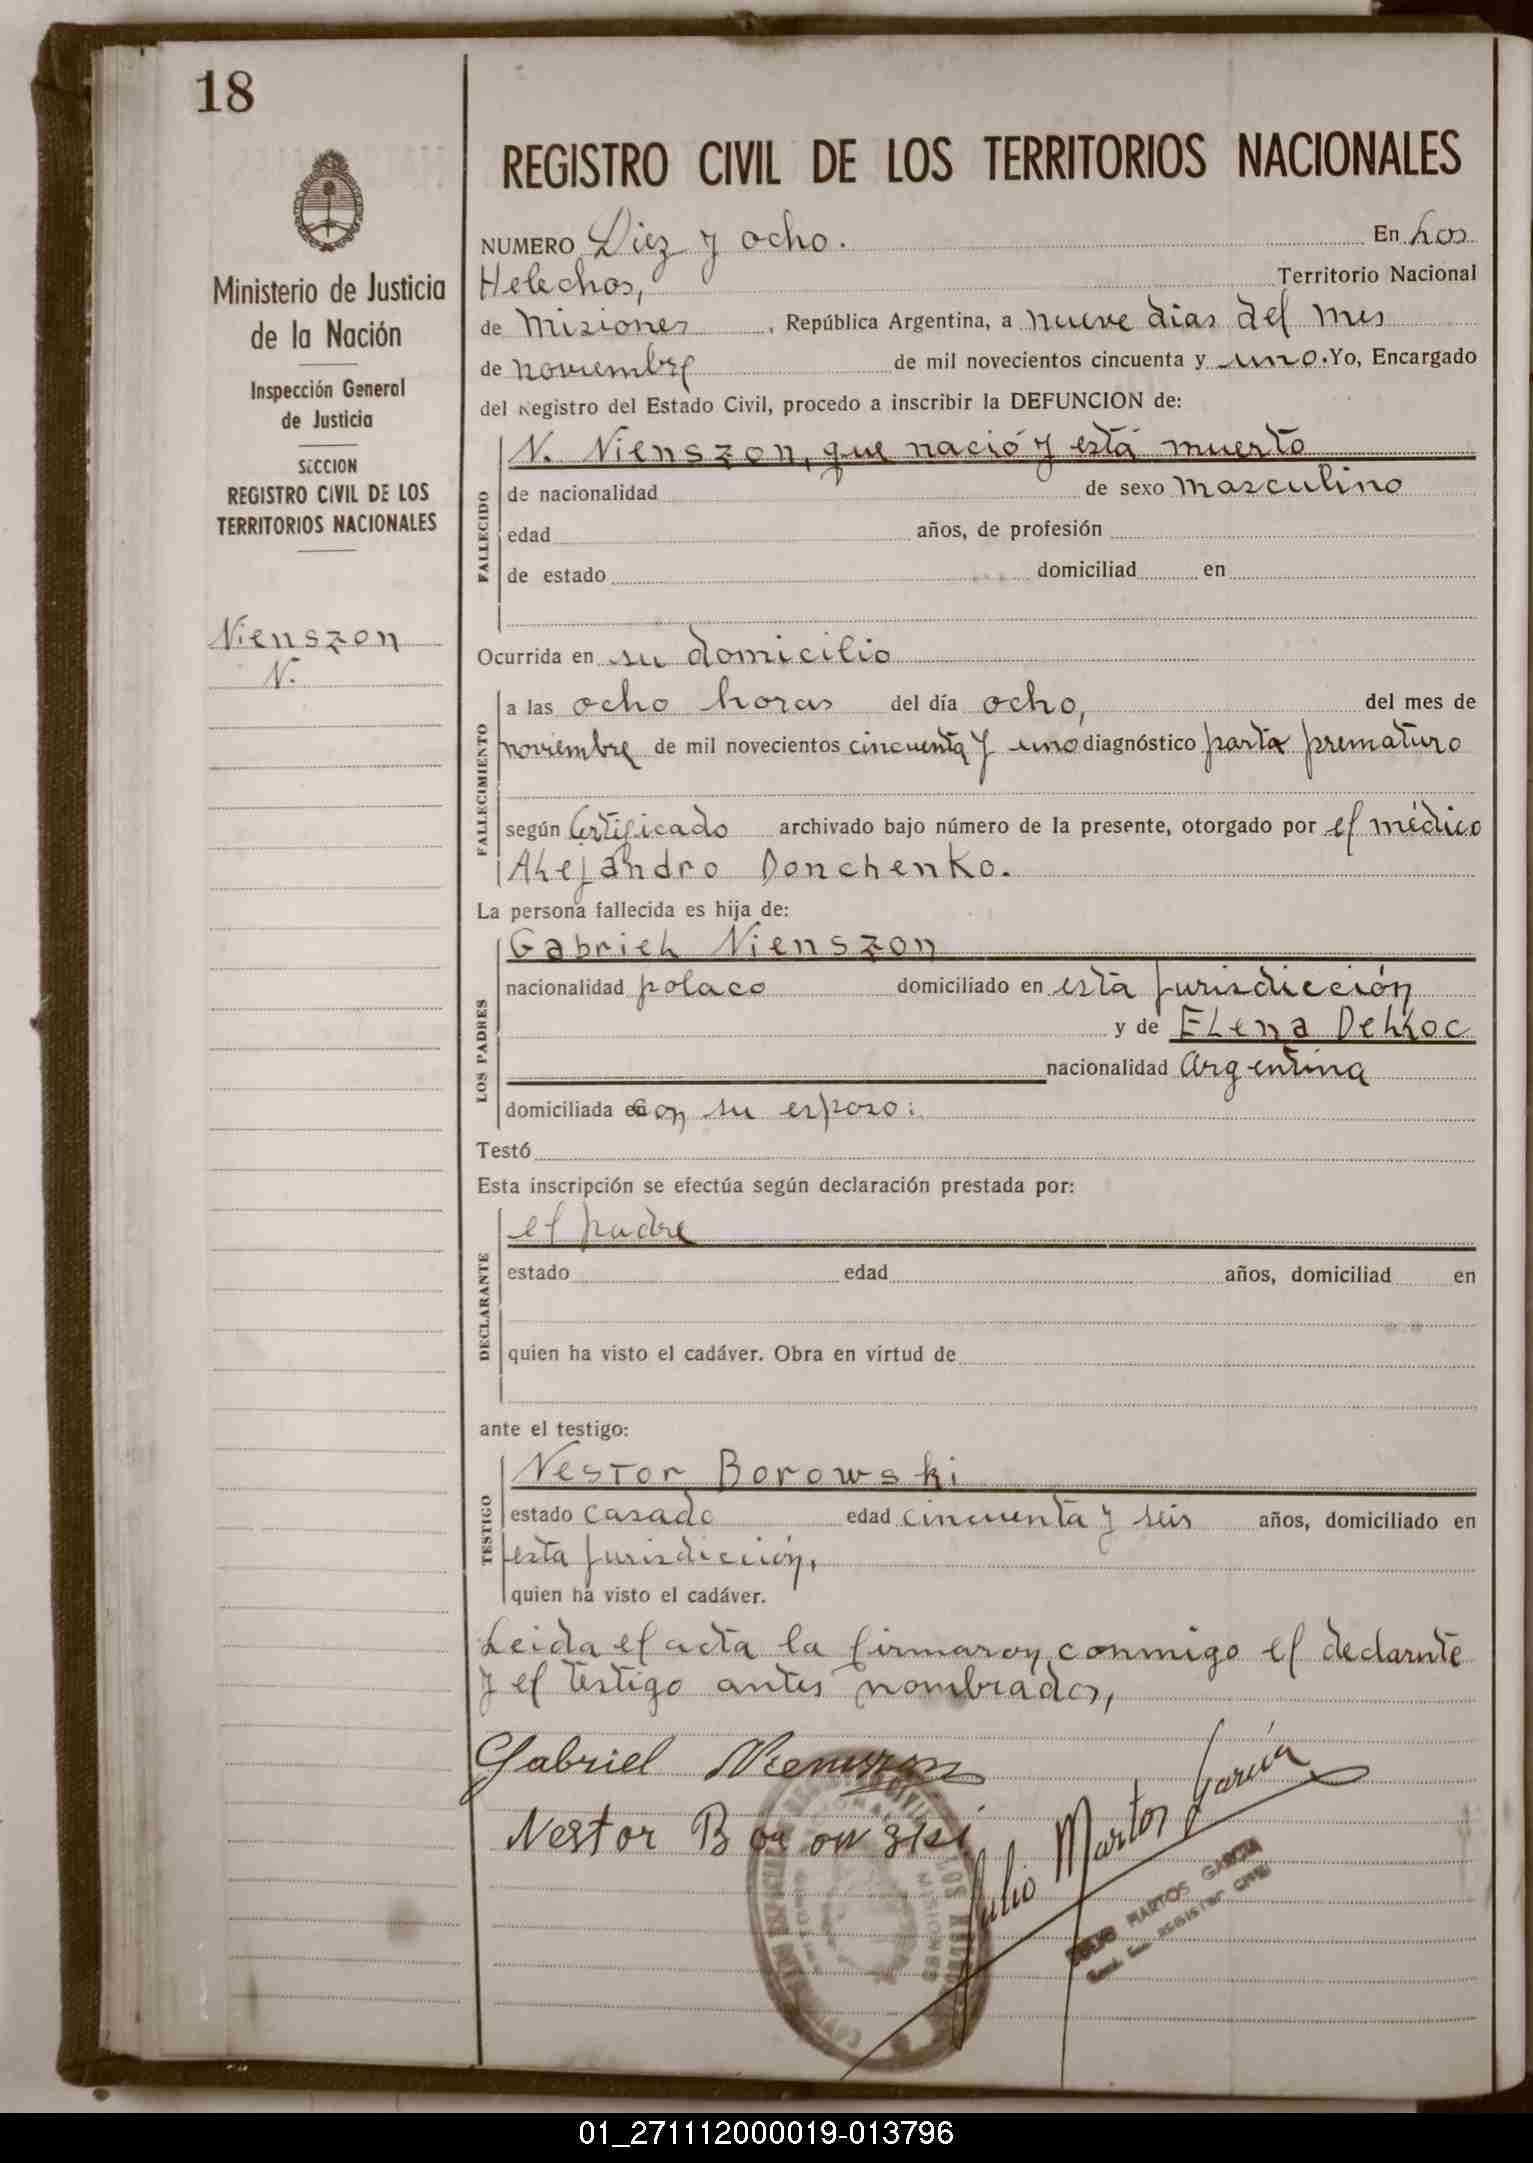 18
Ministerio de Justicia
de la Nación
Inspección General
de Justicia
SECCION
REGISTRO CIVIL DE LOS
TERRITORIOS NACIONALES
Nienszon
N.
REGISTRO CIVIL DE LOS TERRITORIOS NACIONALES
NUMERO Diez y ocho. En Los
Helechos, Territorio Nacional
de Misiones, República Argentina, a nueve dias del mes
de noviembre de mil novecientos cincuenta y uno. Yo, Encargado
del Registro del Estado Civil, procedo a inscribir la DEFUNCION de:
N. Nienszon, que nació y está muerto
FALLECIDO
de nacionalidad de sexo masculino
edad años, de profesión
de estado domiciliad en
Ocurrida en su domicilio
FALLECIMIENTO
a las ocho horas del día ocho, del mes de
noviembre de mil novecientos cincuenta y uno diagnóstico parto prematuro
según Certificado archivado bajo número de la presente, otorgado por el médico
Alejandro Donchenko.
La persona fallecida es hija de:
LOS PADRES
Gabriel Nienszon
nacionalidad polaco domiciliado en esta jurisdicción
y de Elena Dehkoc
nacionalidad Argentina
domiciliada con su esposo:
Testó
Esta inscripción se efectúa según declaración prestada por:
DECLARANTE
el padre
estado edad años, domiciliad en
quien ha visto el cadáver. Obra en virtud de
ante el testigo:
TESTIGO
Nestor Borowski
estado casado edad cincuenta y seis años, domiciliado en
esta jurisdicción,
quien ha visto el cadáver.
Leida el acta la firmaron conmigo el declarnte
y el testigo antes nombrados,
Gabriel Nienszon
Nestor Borowski
Julio Martos García
JULIO MARTOS GARCIA
01_271112000019-013796